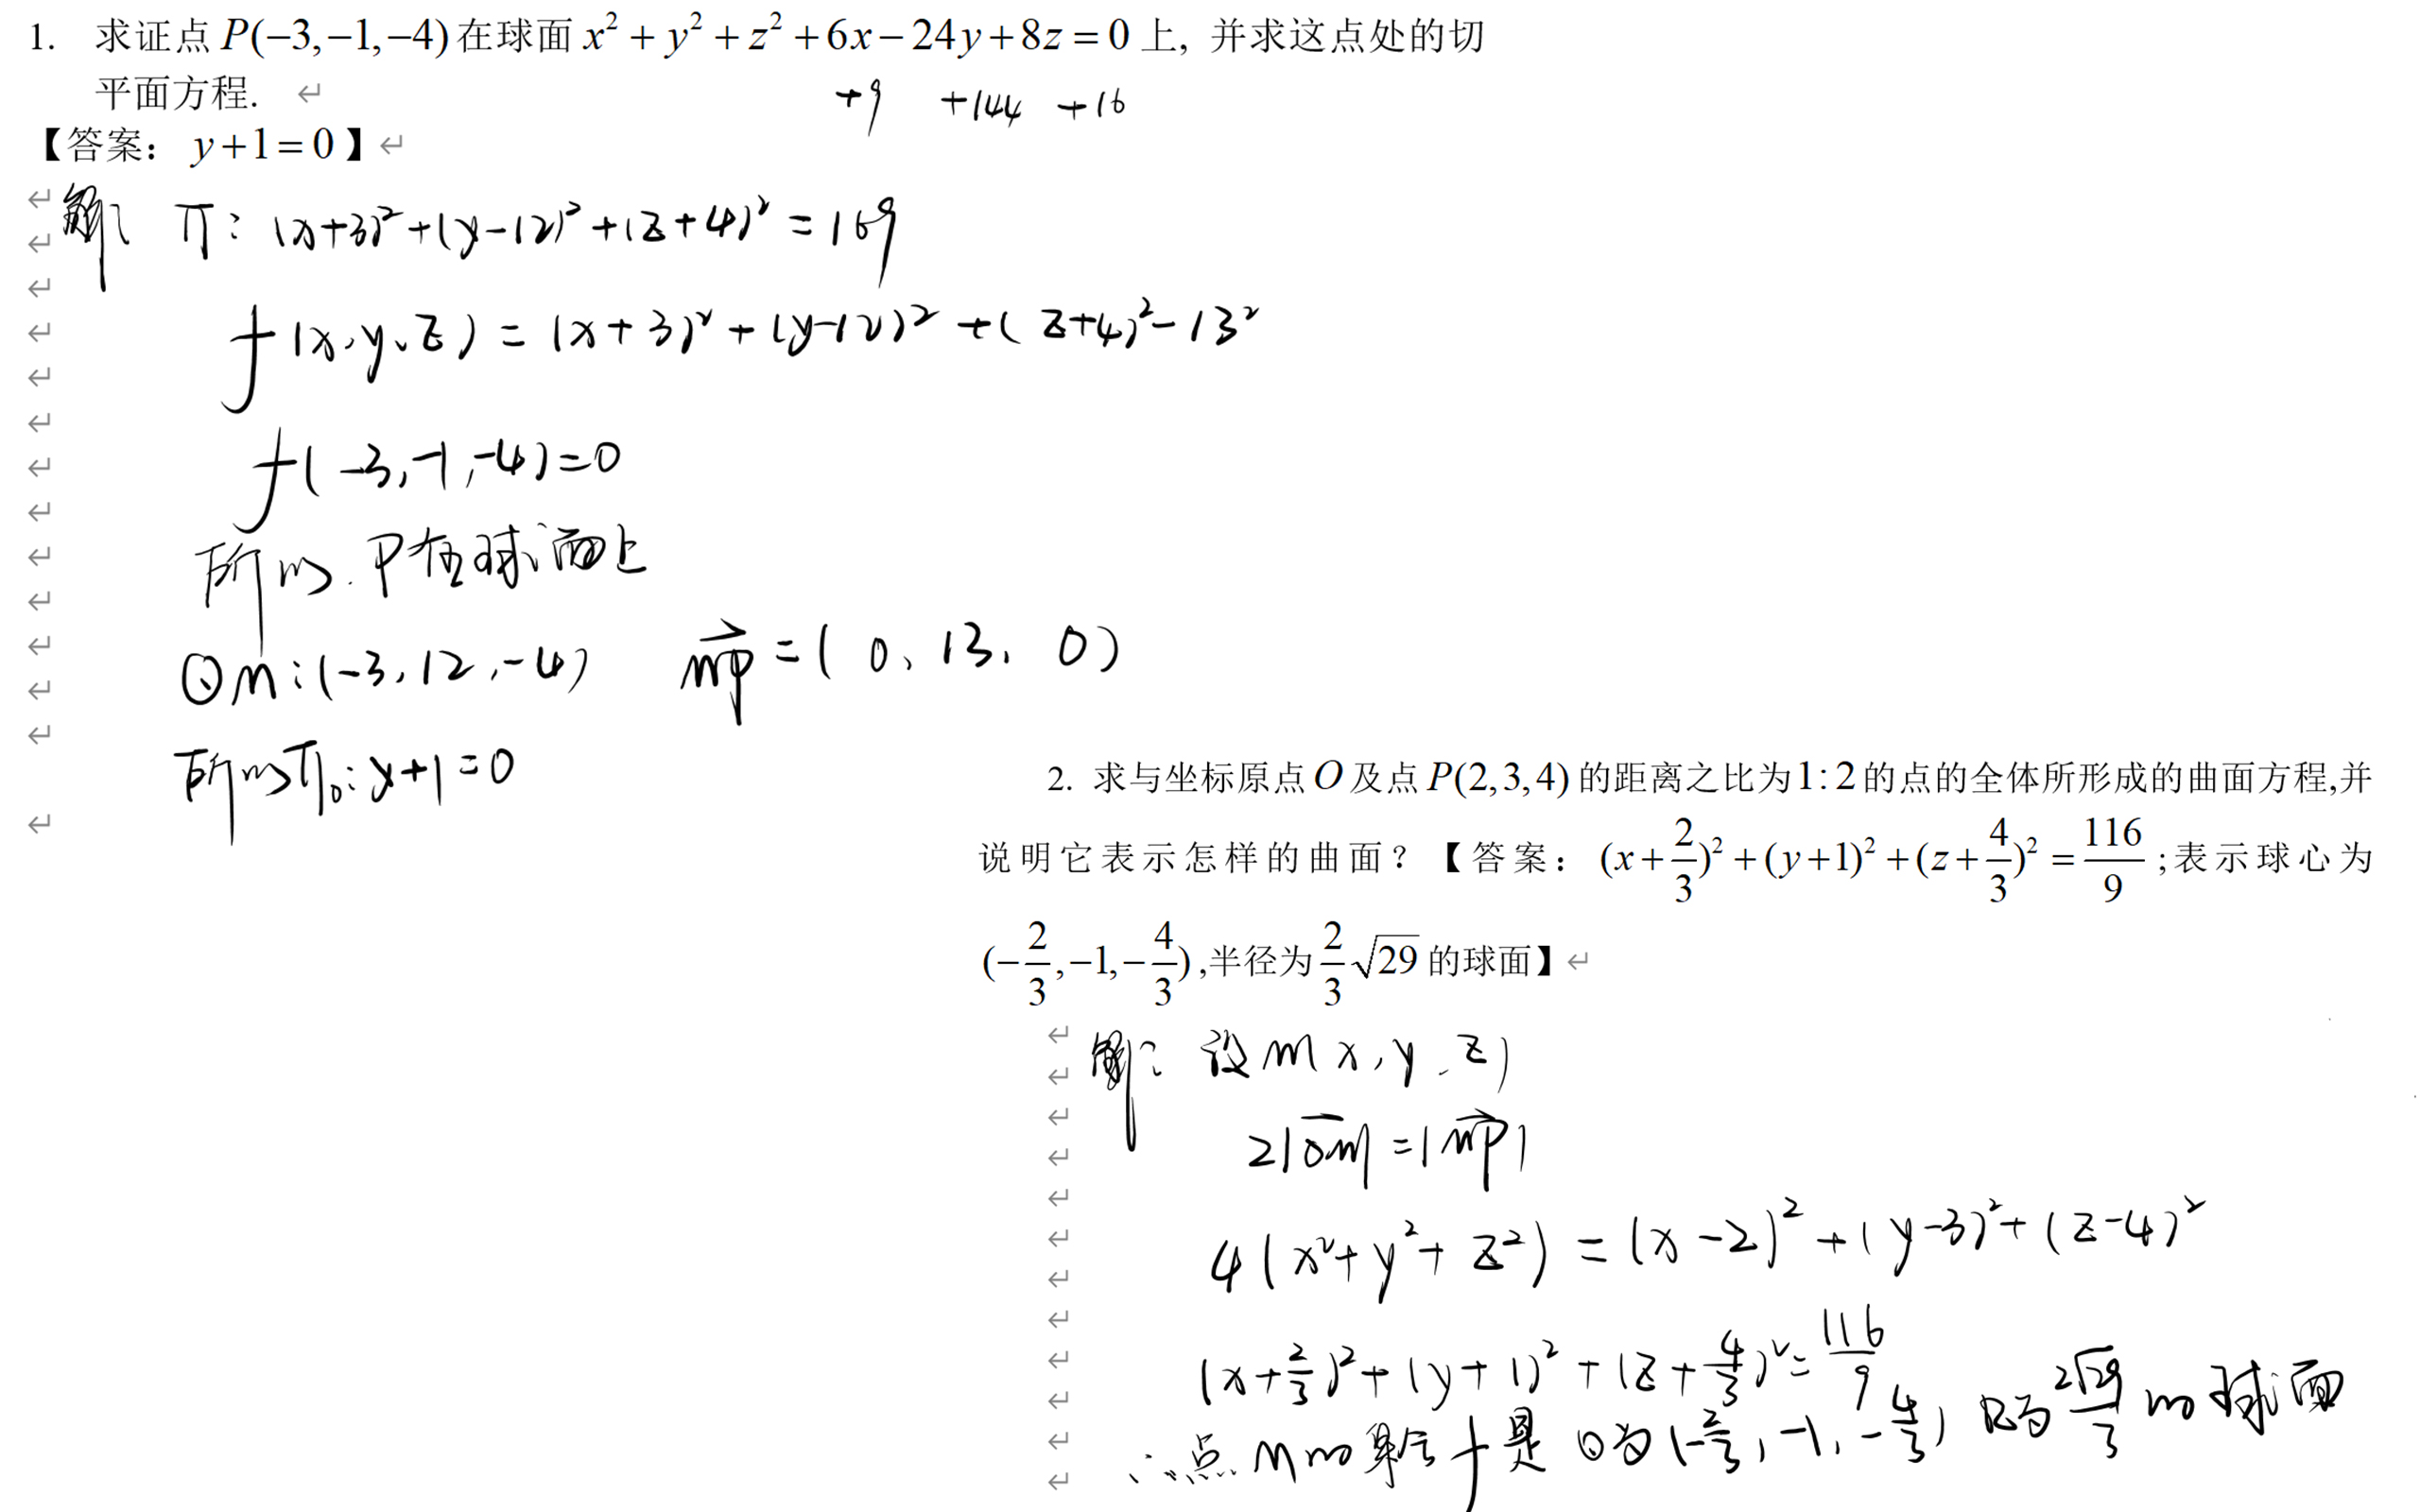 1. 求证点 P(−3,−1,−4) 在球面 x² + y² + z² +6x−24y+8z = 0 上, 并求这点处的切
平面方程. ↵
+9 +144 +16
【答案： y+1=0】↵
解: π: (x+3)²+(y−12)²+(z+4)²=169
f(x,y,z) = (x+3)²+(y−12)²+(z+4)²−13²
f(−3,−1,−4)=0
所以.P在球面上
⊙M:(−3,12,−4) MP=(0,13,0)
所以π₀:y+1=0
2. 求与坐标原点 O 及点 P(2,3,4) 的距离之比为 1:2 的点的全体所形成的曲面方程,并
说明它表示怎样的曲面? 【答案： (x+2/3)²+(y+1)²+(z+4/3)²=116/9 ;表示球心为
(−2/3,−1,−4/3),半径为 2/3√29 的球面】↵
解: 设M x,y,z)
2|OM|=|MP|
4(x²+y²+z²)=(x−2)²+(y−3)²+(z−4)²
(x+2/3)²+(y+1)²+(z+4/3)²=116/9
∴点M的集合f是⊙为(−2/3,−1,−4/3) R为2√29/3的球面